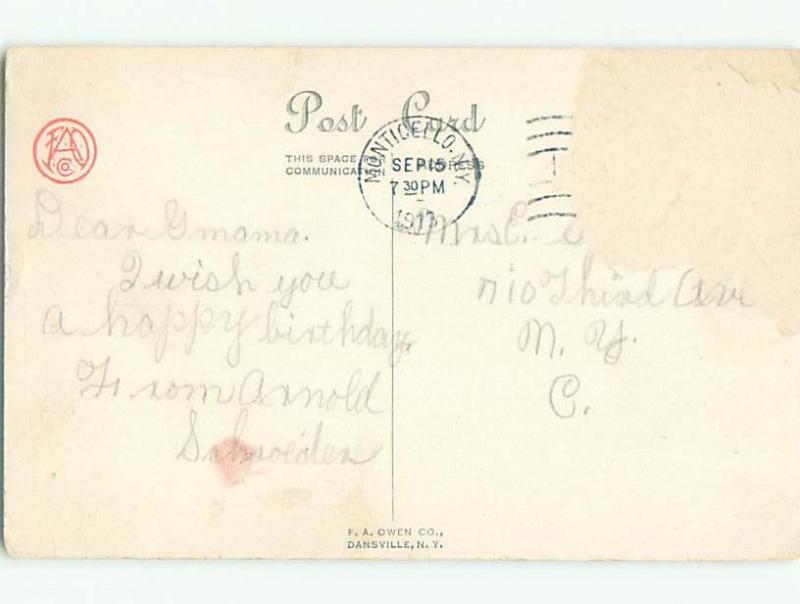 Post Card
THIS SPACE
COMMUNICATION
ADDRESS
MONTICELLO. N.Y.
SEP 15
7 30 PM
FAO
Co.
Dear Gmama.
I wish you
a happy birthday.
From Arnold
Schroeder
Mrs C.
710 Third Ave
N. Y.
C.
F. A. OWEN CO.,
DANSVILLE, N. Y.